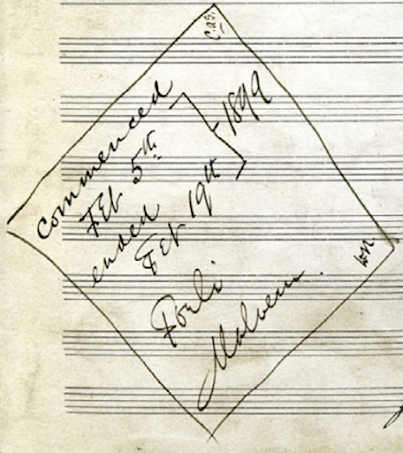 Commenced
Feb 5th
ended
Feb 19th
1899
Forli
Malvern.